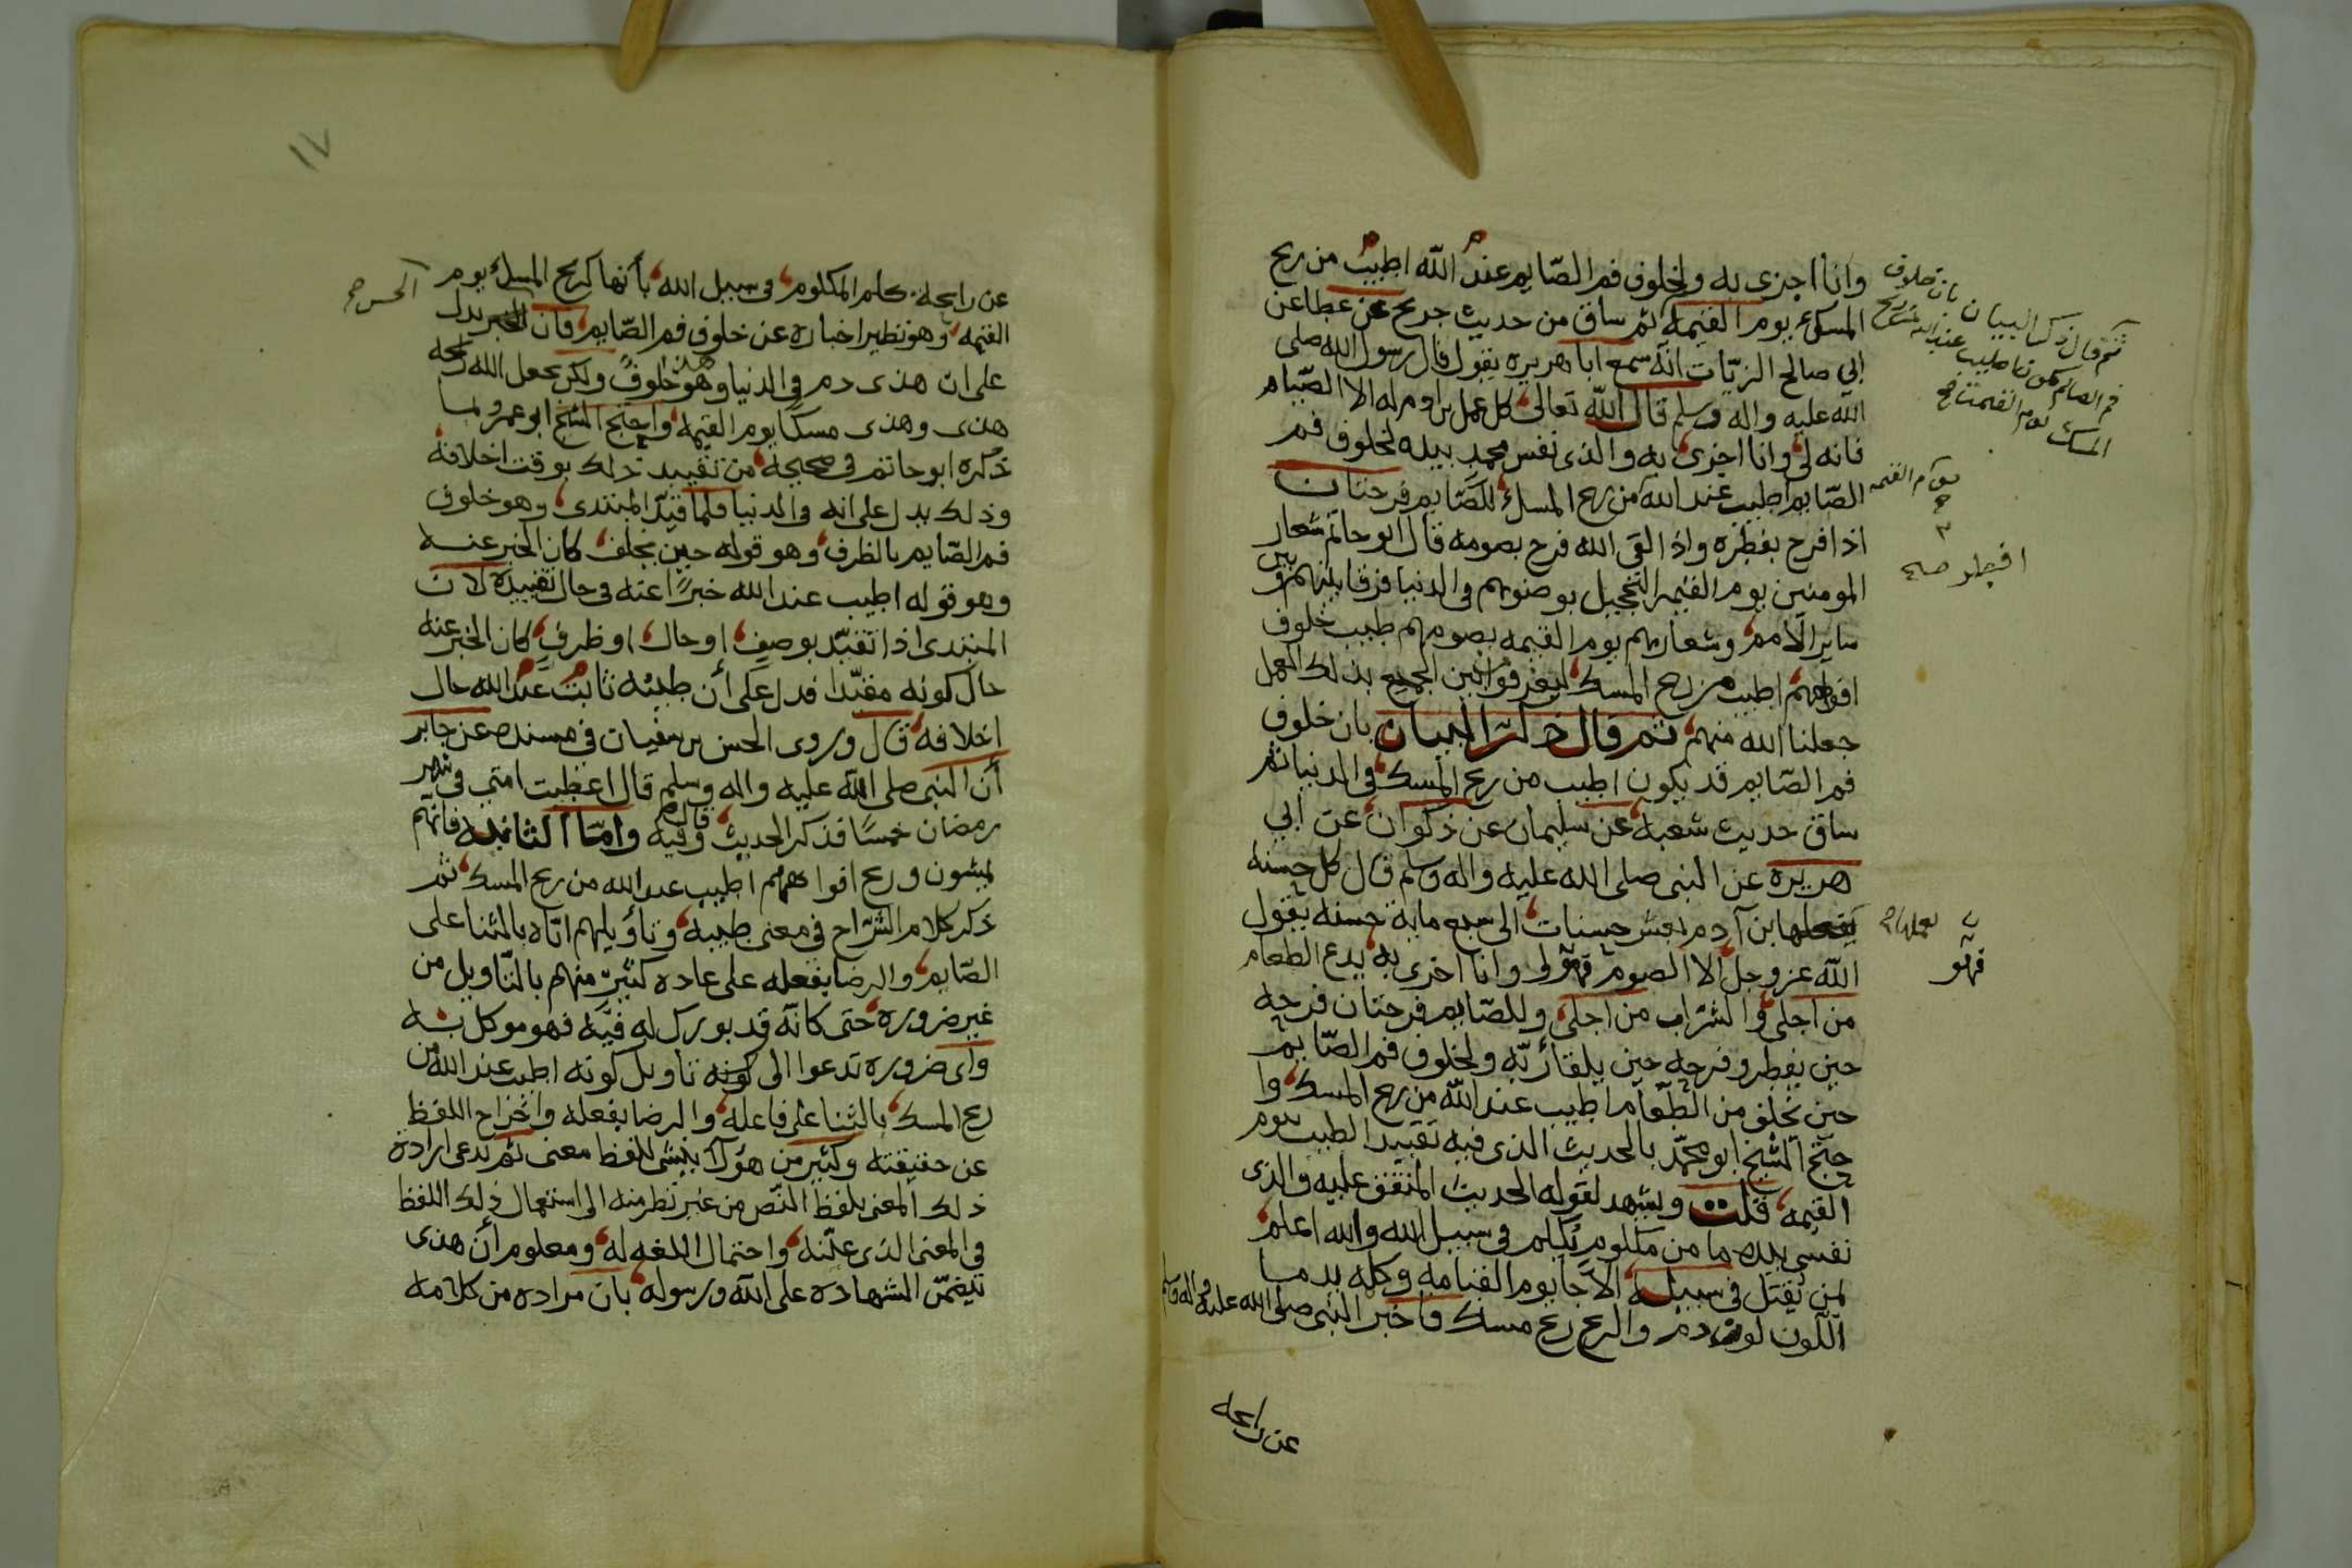 وانا اجزي به ولخلوف فم الصّايم عند الله اطيب من ريح
المسك يوم القيمه ثم ساق من حديث جريح عن عطا عن
ابي صالح الزيّات انه سمع ابا هريره يقول قال رسول الله صلى
الله عليه واله وسلم قال الله تعالى كل عمل بن ادم له الا الصّيام
فانه لي وانا اجزى به والذى نفس محمد بيده لخلوف فم
الصّايم اطيب عند الله من ريح المسك للصّايم فرحتان
اذا فرح بفطره واذا لقى الله فرح بصومه قال ابو حاتم شعار
المومنين يوم القيمه التحجيل بوضوئهم في الدنيا فرقا بينهم وبين
ساير الامم وشعارهم يوم القيمه بصومهم طيب خلوف
افواههم اطيب من ريح المسك ليعرفوا بين الجمع بذلك العمل
جعلنا الله منهم ثم قال ذكر البيان بان خلوف
فم الصّايم قد يكون اطيب من ريح المسك في الدنيا ثم
ساق حديث شعبه عن سليمان عن ذكوان عن ابي
هريره عن النبى صلى الله عليه واله وسلم قال كل حسنه
يفعلها بن آدم بعشر حسنات الى سبع ماية حسنه يقول
الله عز وجل الا الصوم فهو لى وانا اجزى به يدع الطعام
من اجلى والشراب من اجلى وللصّايم فرحتان فرحه
حين يفطر وفرحه حين يلقا ربّه ولخلوف فم الصّايم
حين تخلف من الطّعام اطيب عند الله من ريح المسك وا
حتج الشيخ ابو محمّد بالحديث الذى فيه تقييد الطيب بيوم
القيمه قلت ويشهد لقوله الحديث المتفق عليه والذى
نفسى بيده ما من مكلوم يكلم في سبيل الله والله اعلم
لمن يقتل في سبيله الا جا يوم القيامه وكلمه يدما
اللّون لون دم والريح ريح مسك فاخبر النبى صلى الله عليه واله وسلم
عن رايحه
ثم قال ذكر البيان بان خلوف
فم الصائم يكون اطيب عند الله من ريح
المسك يوم القيمه
يوم القيمه
افطر صح
يعملها
فهو
١٧
عن رايحة كلم المكلوم في سبيل الله بأنها كريح المسك يوم
القيمه وهو نظير اخباره عن خلوف فم الصّايم فان الحس يدل
على ان هذى دم في الدنيا وهو خلوف ولكن يجعل الله رايحه
هذى وهذى مسكا يوم القيمه واحتج الشيخ ابو عمرو بما
ذكره ابو حاتم في صحيحه من تقييد ذلك بوقت اخلافه
وذلك يدل على انه في الدنيا فلما قيّد المبتدى وهو خلوف
فم الصّايم بالظرف وهو قوله حين يخلف كان الخبر عنه
وهو قوله اطيب عند الله خبرًا عنه في حال تقييده لان
المبتدى اذا تقيّد بوصف او حال او ظرف كان الخبر عنه
حال كونه مقيّدا فدل على أن طيبه ثابت عند الله حال
اخلافه قال وروى الحسن بن سفيان في مسنده عن جابر
أن النبى صلى الله عليه واله وسلم قال اعطيت امتي في شهر
رمضان خمسًا فذكر الحديث وفيه قال واما الثانيه فانهم
يمسون وريح افواههم اطيب عند الله من ريح المسك ثم
ذكر كلام الشّراح في معنى طيبه وتأويلهم اياه بالثنا على
الصّايم والرضا بفعله على عاده كثير منهم بالتّاويل من
غير ضروره حتى كانه قد بورك له فيه فهو موكل به
واى ضروره تدعوا الى تاويل كونه اطيب عند الله من
ريح المسك بالثنا على فاعله والرضا بفعله واخراج اللفظ
عن حقيقته وكثير من هولا ينشى للفظ معنى ثم يدعى ارادة
ذلك المعنى بلفظ النّص من غير نظر منه الى استعمال ذلك اللفظ
في المعنى الذى عيّنه واحتمال اللغه له ومعلوم أن هذى
يتضمّن الشهاده على الله ورسوله بان مراده من كلامه
الحس صح